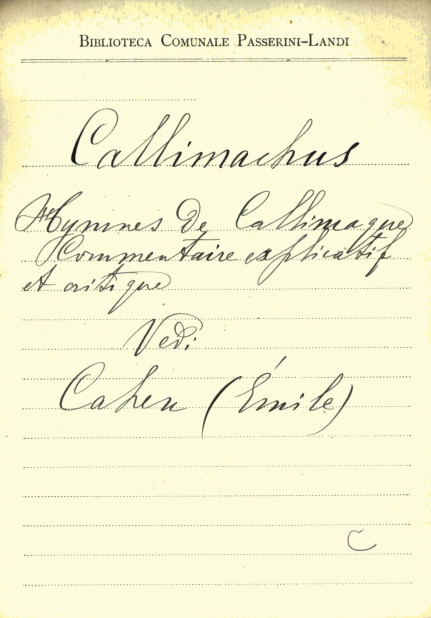 BIBLIOTECA COMUNALE PASSERINI-LANDI
Callimachus
Hymnes de Callimaque
Commentaire explicatif
et critique
Vedi
Cahen (Émile)
C